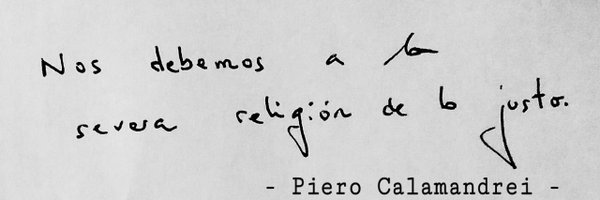 Nos debemos a la
severa religión de lo justo.
- Piero Calamandrei -